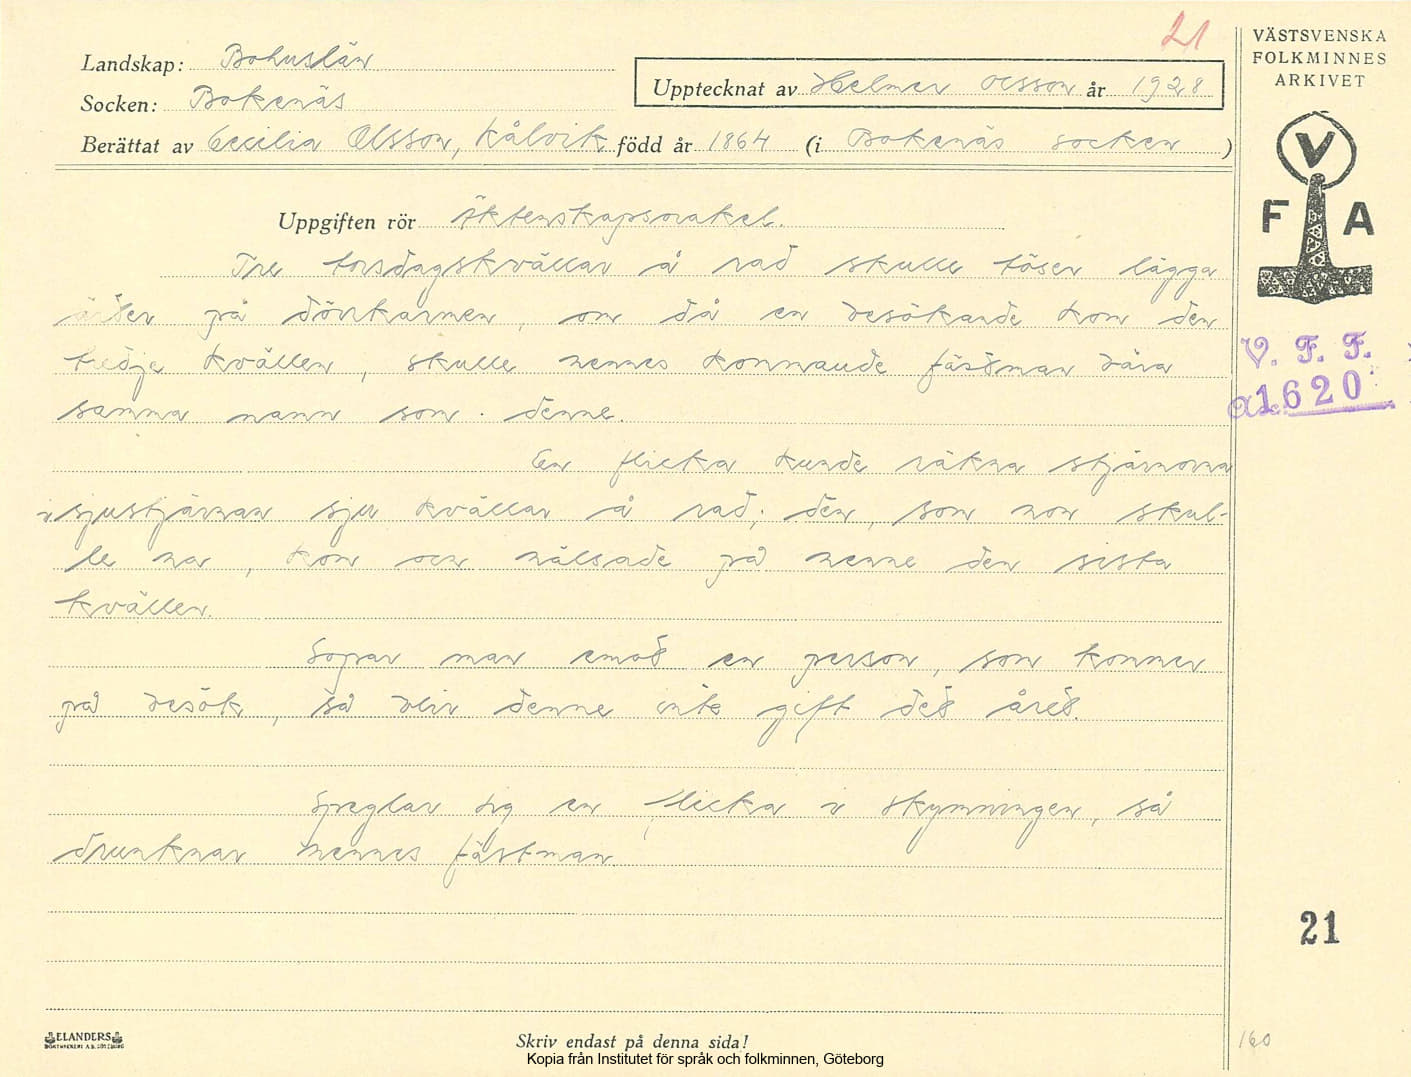 21
Landskap: Bohuslän
Socken: Bokenäs
Upptecknat av Helmer Olsson år 1928
Berättat av Cecilia Olsson, Kålvik född år 1864 (i Bokenäs socken )
Uppgiften rör Äktenskapsorakel.
Tre torsdagskvällar å rad skulle töser lägga
ärter på dörrkarmen, om då en besökande kom den
tredje kvällen, skulle hennes kommande fästman bära
samma namn som denne.
En flicka kunde räkna stjärnorna
i sjustjärnan sju kvällar å rad; den, som hon skul-
le ha, kom och hälsade på henne den sista
kvällen.
Sopar man emot en person, som kommer
på besök, så blir denne inte gift det året.
Speglar sig en flicka i skymningen, så
drunknar hennes fästman.
VÄSTSVENSKA
FOLKMINNES
ARKIVET
V
F A
V. F. F.
1620
21
160
ELANDERS
BOKTRYCKERI A.B. GÖTEBORG
Skriv endast på denna sida!
Kopia från Institutet för språk och folkminnen, Göteborg